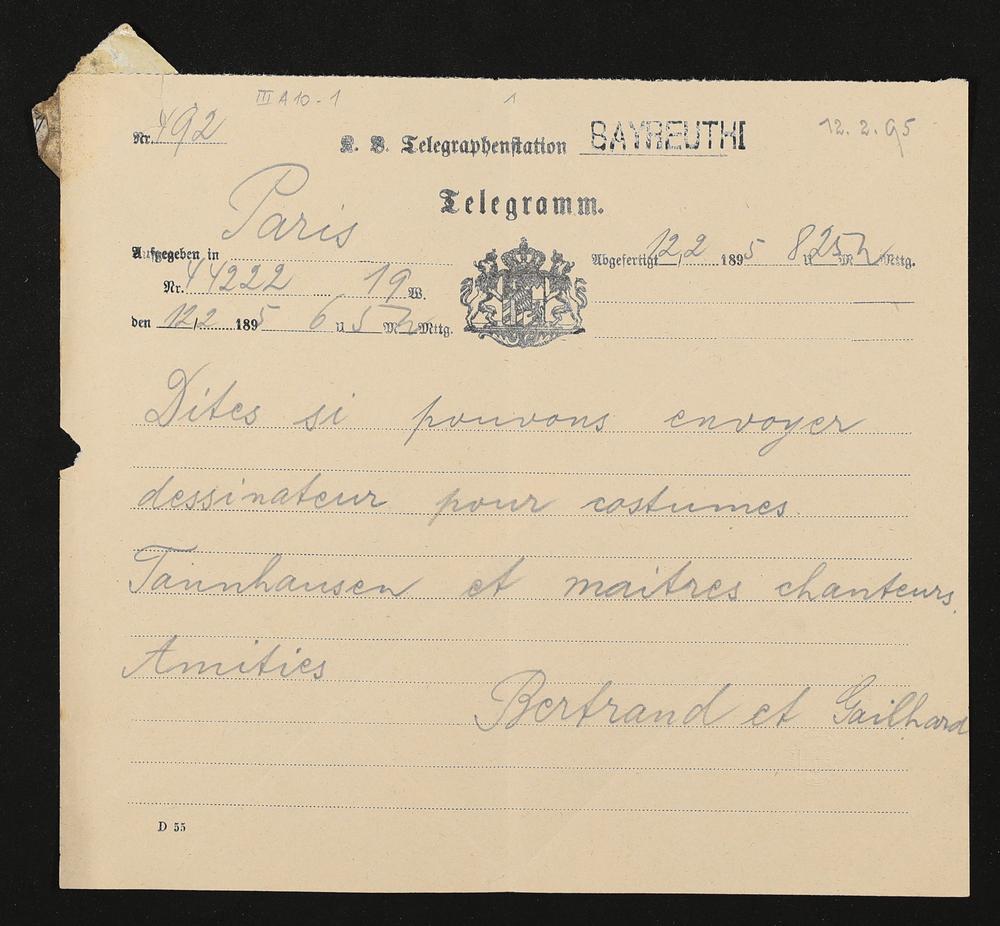 III A 10-1
1
Nr. 492
K. B. Telegraphenstation BAYREUTH I
12. 2. 95
Telegramm.
Aufgegeben in Paris
Nr. 44222 19 W.
den 12/2 1895 6 U 5 M Mttg.
Abgefertigt 12/2 1895 8 U 25 M Mttg.
Dites si pouvons envoyer
dessinateur pour costumes
Tannhausen et maitres chanteurs.
Amities
Bertrand et Gailhard
D 55